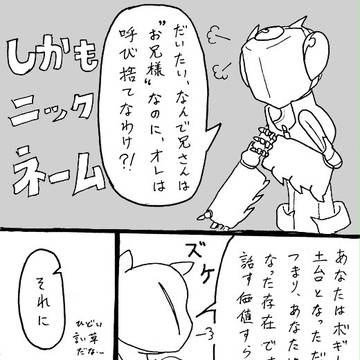 だいたい、なんで兄さんは
“お兄様”なのに、オレは
呼び捨てなわけ?!
しかも
ニック
ネーム
あなたはボギ
土台となっただ
つまり、あなたは
なった存在です
話す価値すら
ズケ
それに
ひどい
言い草
だな…